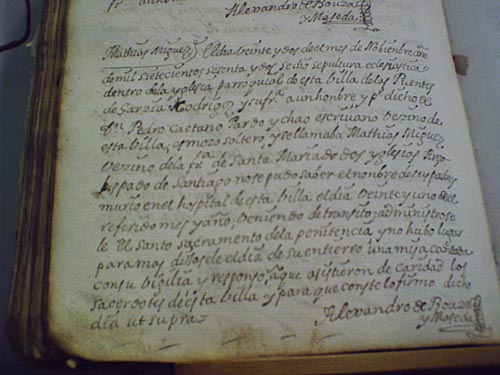 Alexandro de Bouza
y Maseda
Mathias Miguez / El dia beinte y dos del mes de Nobienbre año
de mil sietecientos sesenta y dos se dio sepultura eclesiastica
dentro dela yglesia parroquial de esta billa delas Puentes
de Garzia Rodriguez y su fr.ª a un honbre y p.r dicho de
D.n Pedro Caetano Pardo y chao escrivano vezino de
esta billa, es mozo soltero, y se llamaba Mathias Miguez
vezino dela fr.ª de Santa Maria de dos yglesias Arzo
bispado de Santiago no se pudo saber el nonbre de sus padres
murio en el hospital de esta billa el dia veinte y uno del
referido mes y año, beniendo de transito, se administrose
le El santo sacramento dela penitencia y no hubo lugar
para mas disosele el dia de su entierro una misa cantada
con su bigilia y responso, a que asistieron de caridad los
sacerdotes de esta billa y para que conste lo firmo dicho
dia ut supra=
Alexandro de Bouza
y Maseda